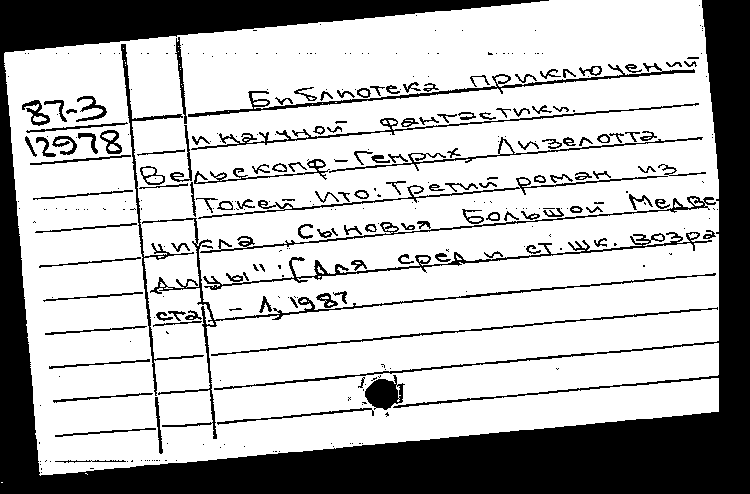 87-3
12978
Библиотека приключений
и научной фантастики.
Вельскопф-Генрих, Лизелотта
Токей Ито: Третий роман из
цикла „Сыновья Большой Медве-
дицы": [Для сред и ст. шк. возра-
ста] - Л, 1987.